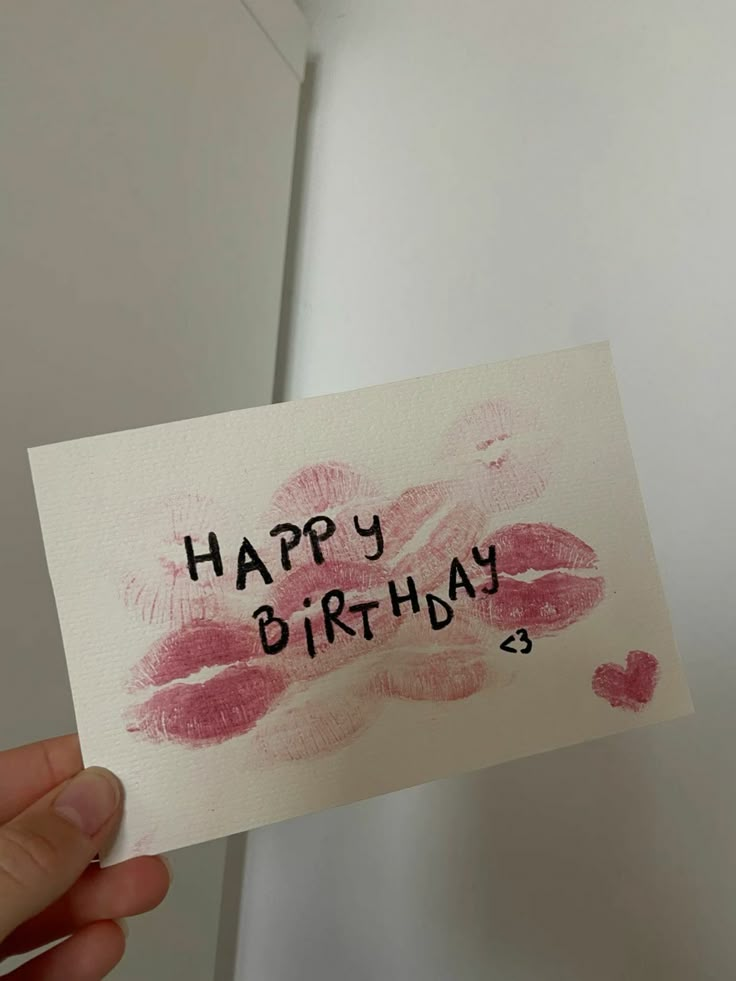 HAPPY
BiRTHDAY
<3